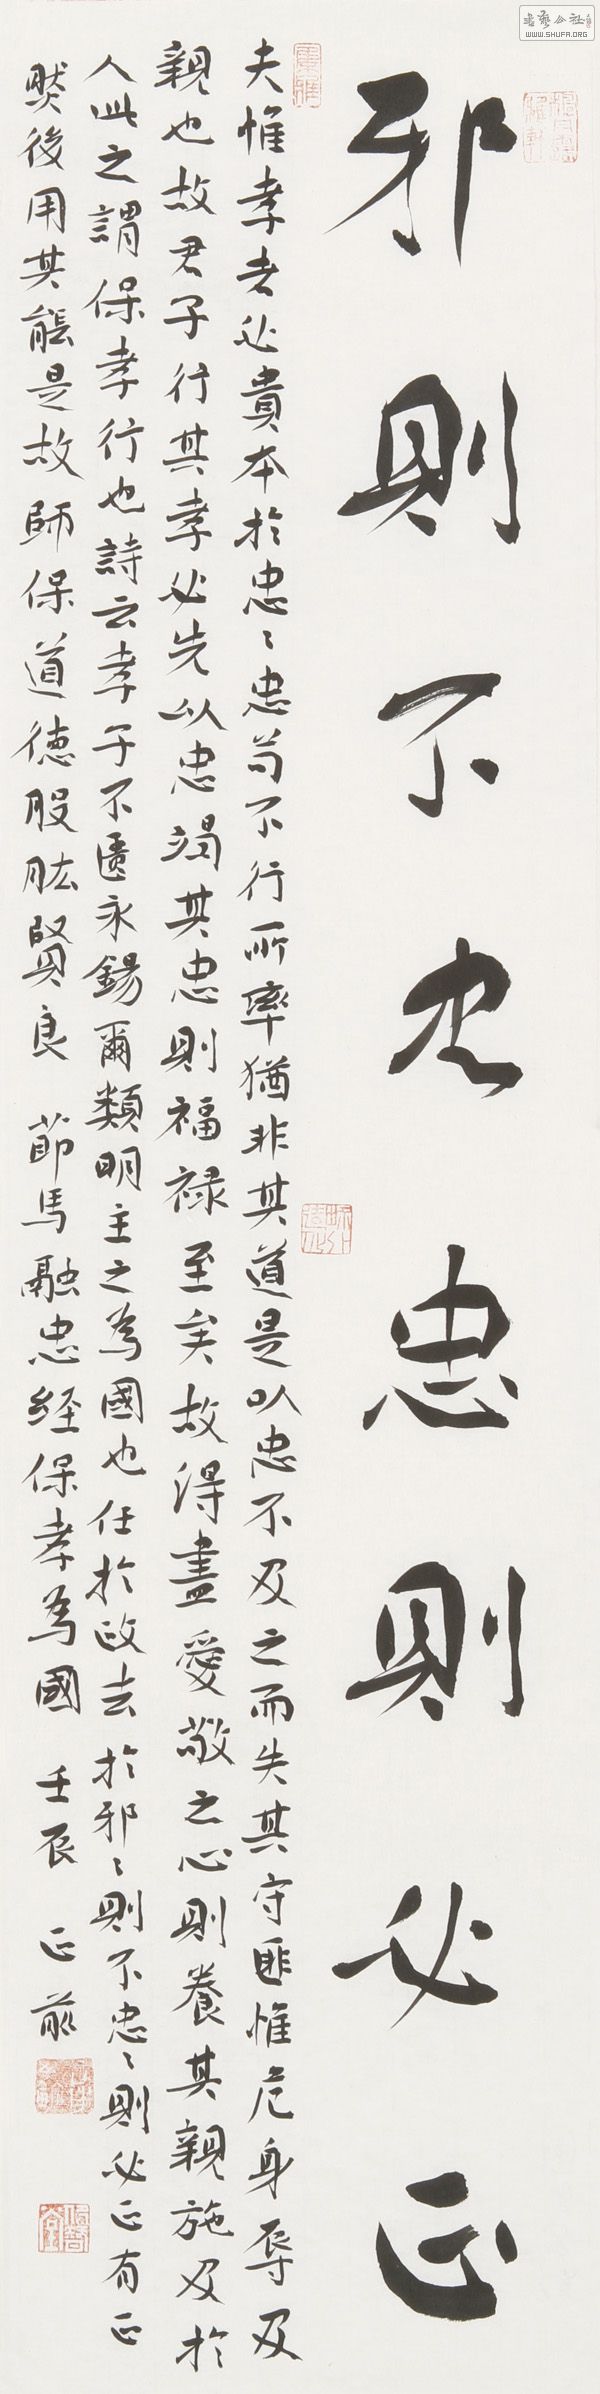 書藝公社
WWW.SHUFA.ORG
邪則不忠忠則必正
夫惟孝者必貴本於忠〻忠苟不行所率猶非其道是以忠不及之而失其守匪惟危身辱及
親也故君子行其孝必先以忠竭其忠則福祿至矣故得盡愛敬之心則養其親施及於
人此之謂保孝行也詩云孝子不匱永錫爾類明主之為國也任於政去於邪〻則不忠〻則必正有正
然後用其能是故師保道德股肱賢良 節馬融忠經保孝為國 壬辰 正